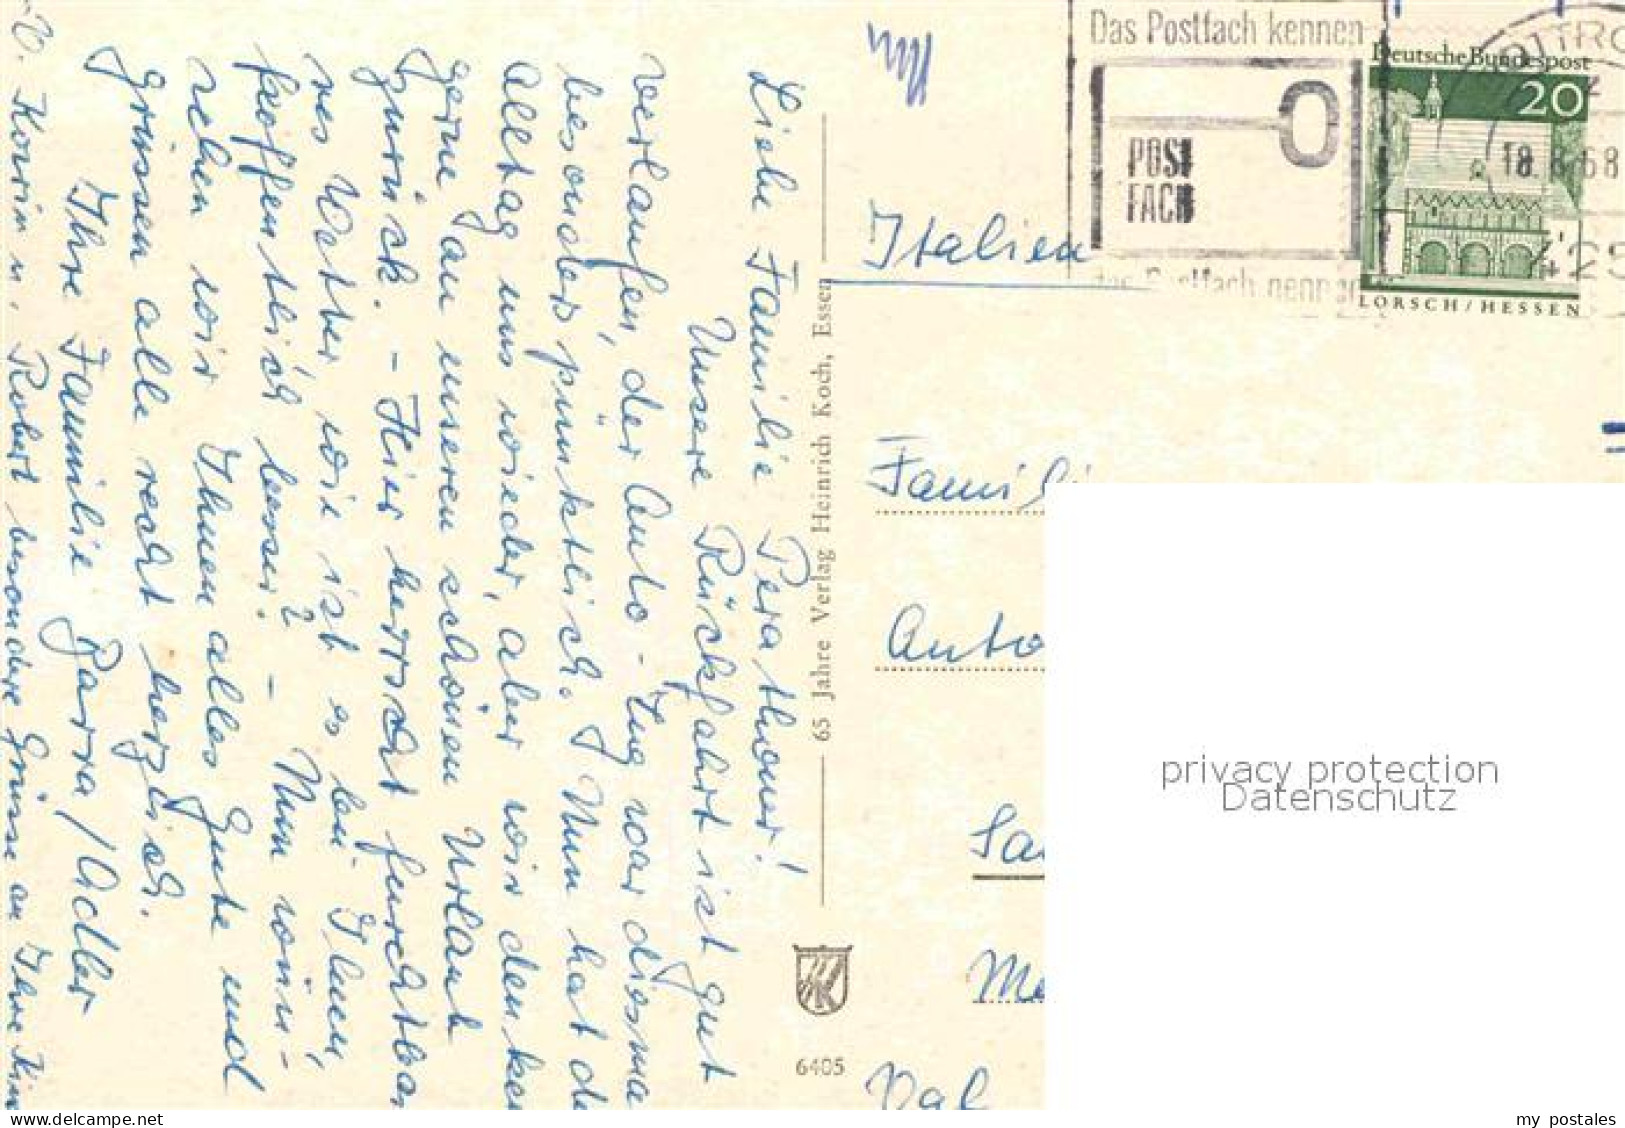 Liebe Familie Perathoner!
Unsere Rückfahrt ist gut
verlaufen, der Auto-Zug war diesma
besonders pünktlich. Nun hat de
Alltag uns wieder, aber wir denken
gerne an unseren schönen Urlaub
zurück. - Hier herrscht furchtbar
Wetter, wie ist es bei Ihnen,
hoffentlich besser? - Nun wün-
schen wir Ihnen alles Gute und
grüssen alle recht herzlich.
Ihre Familie /Adler
Robert besondere Grüsse an Ihre
65 Jahre Verlag Heinrich Koch, Essen
6405
Das Postfach kennen
POST
FACH
das Postfach nennen
Deutsche Bundespost
20
LORSCH/HESSEN
Italien
Famili
Anto
privacy protection
Datenschutz
my postales